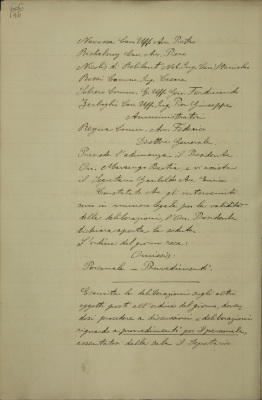 Navessa Cav. Uff. Avv. Pietro
Cav. Avv. Piero
Nicolis di Robilant Nob. Ing. Cav. Stanislao
Bossi Comm. Ing. Cesare
Comm. G. Uff. Gen. Ferdinando
Cav. Uff. Ing. Pio Giuseppe
Amministratori
Regina Comm. Avv. Federico
Direttore Generale.
Presiede l'adunanza il Presidente
On. Marsengo Bastia e vi assiste
il Segretario Garibaldi Avv.
Constatato che gli intervenuti
sono in numero legale per la validità
delle deliberazioni, l'On. Presidente
dichiara aperta la seduta.
L'ordine del giorno reca:
Omissis:
Personale - Provvedimenti.
Esaurite le deliberazioni sugli altri
oggetti posti all'ordine del giorno, doven-
dosi procedere a discussioni e deliberazioni
riguardo a provvedimenti per il personale,
assentatosi dalla sala il Segretario